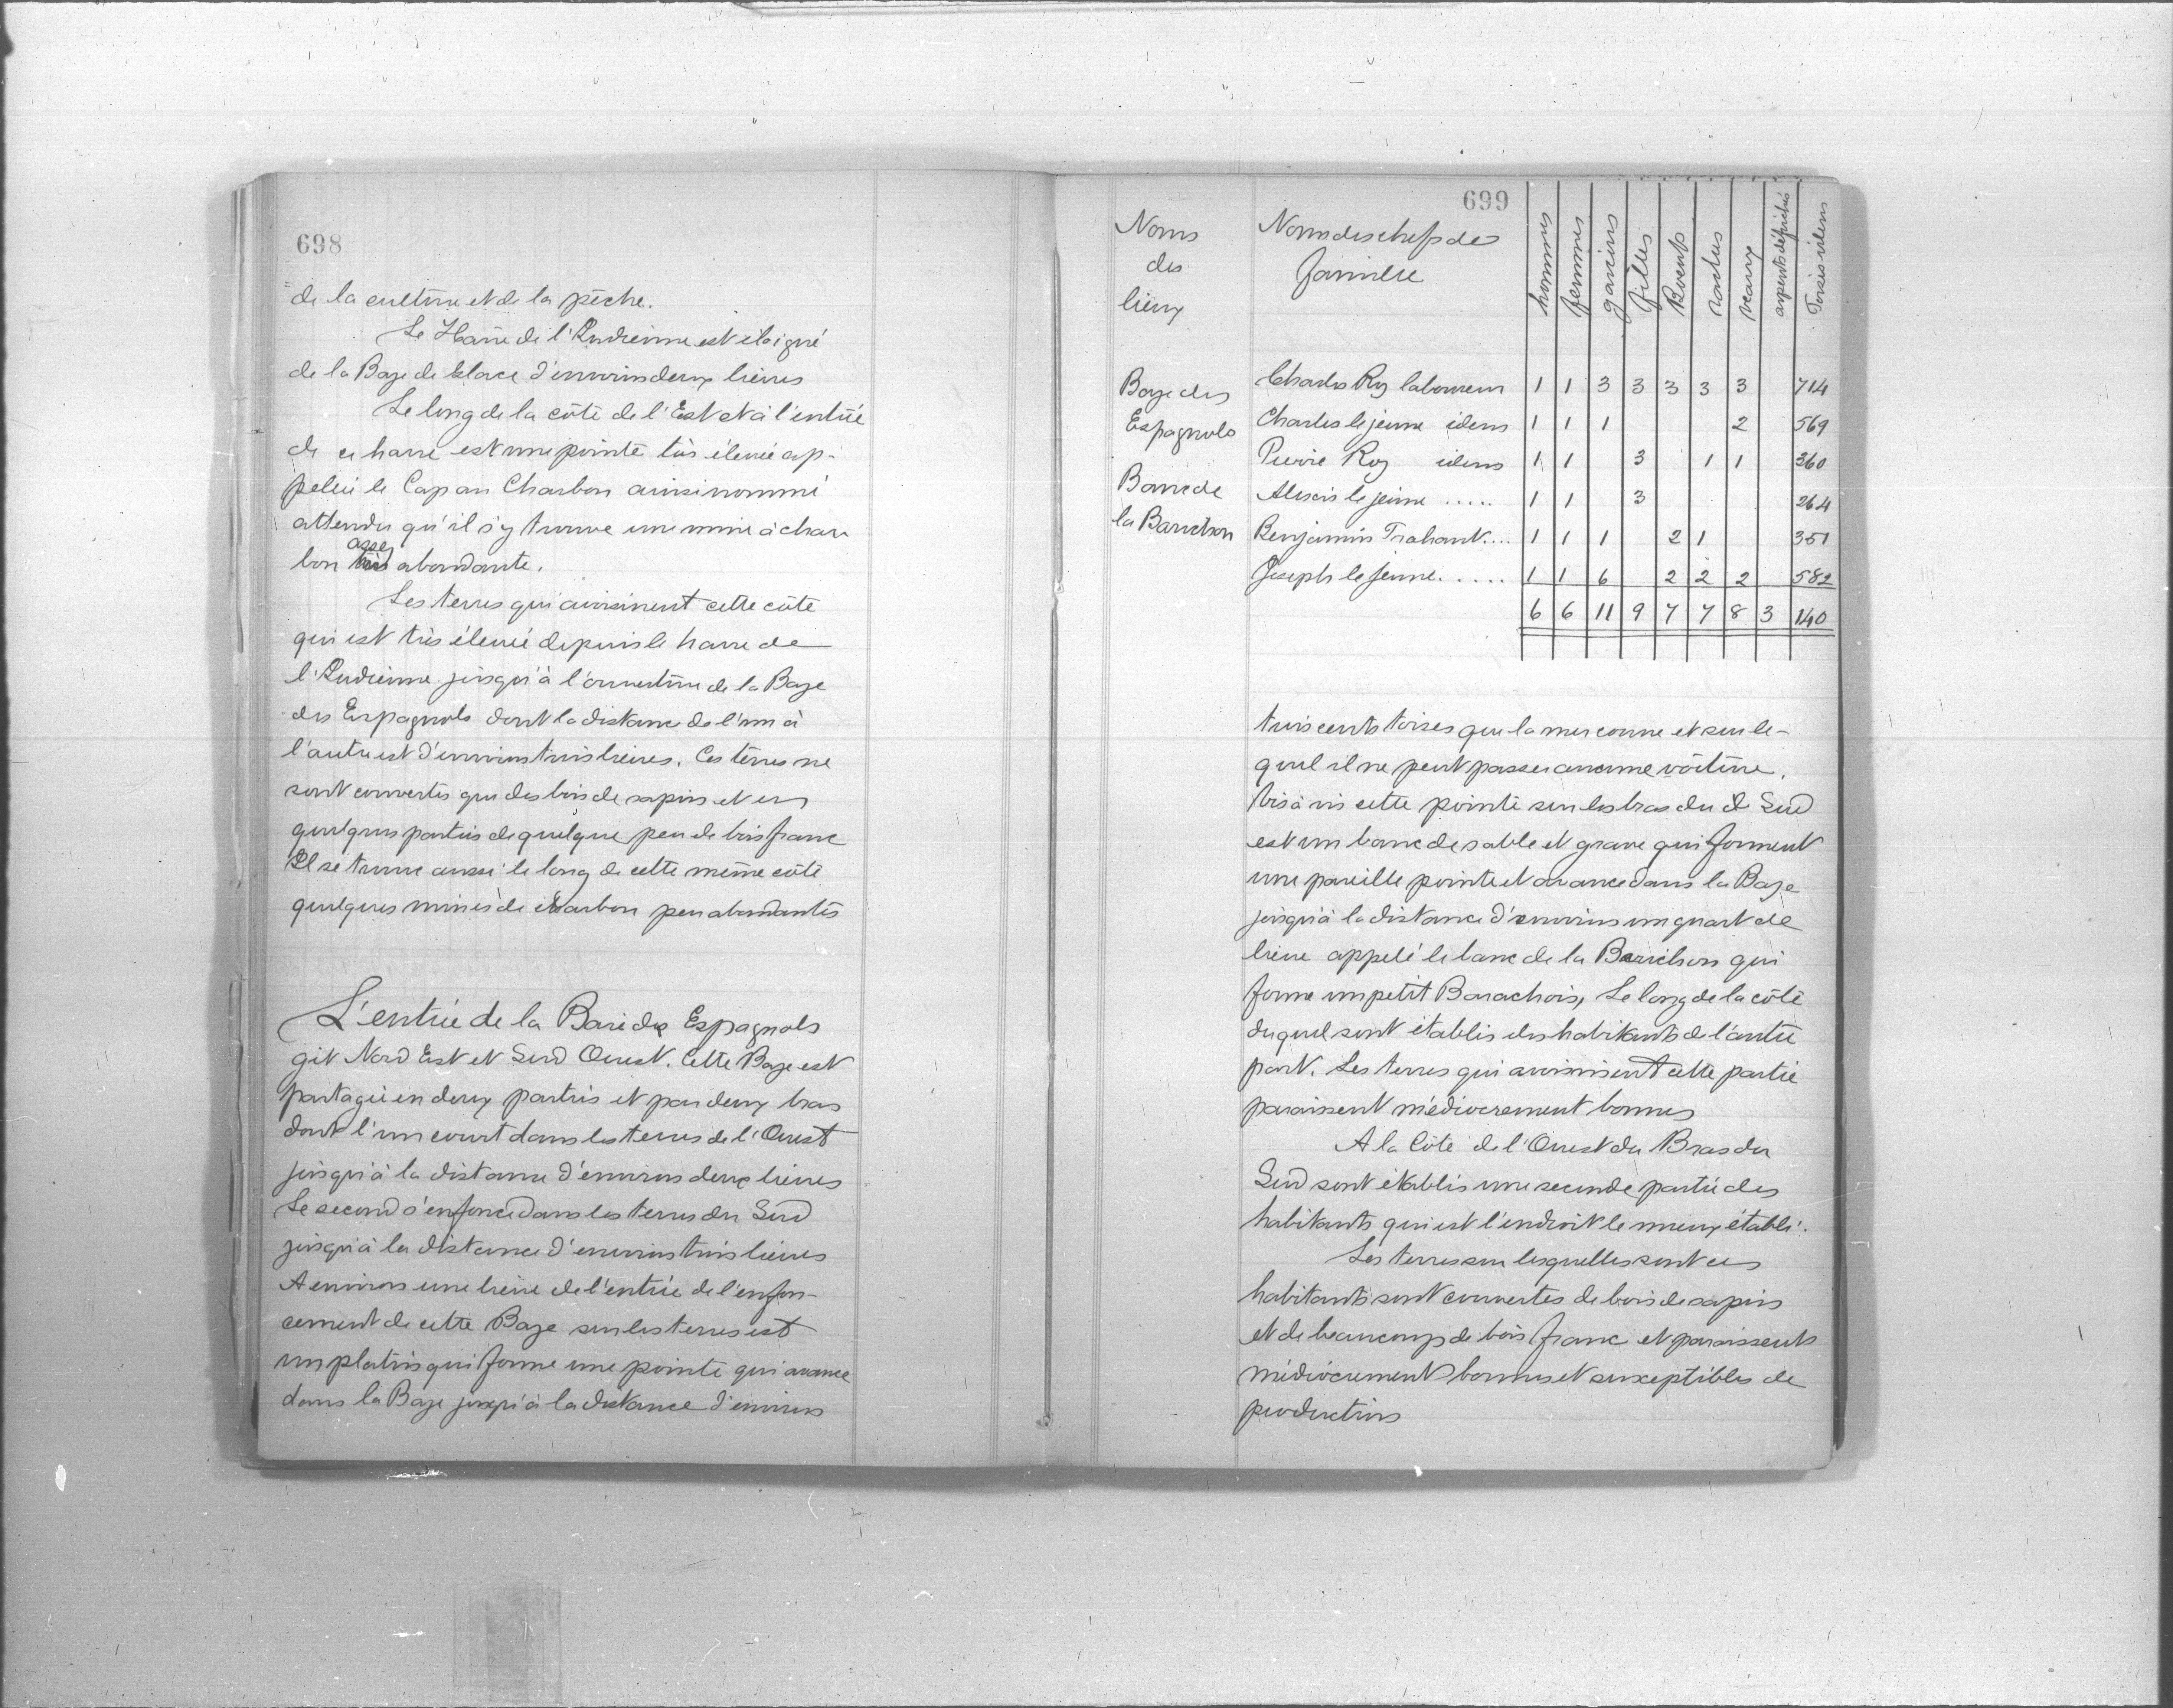 698
de la culture et de la pêche.
Le Havre de l'Indienne est éloigné
de la Baye de Glace d'environ deux lieues
Le long de la côte de l'Est et à l'entrée
de ce havre est une pointe très élevée ap-
pelée le Cap au Charbon ainsi nommé
attendu qu'il s'y trouve une mine à char
bon assez abondante.
Les terres qui avoisinent cette côte
qui est très élevée depuis le havre de
l'Indienne jusqu'à l'ouverture de la Baye
des Espagnols dont la distance de l'un à
l'autre est d'environ trois lieues. Ces terres ne
sont couvertes que des bois de sapin et en
quelques parties de quelque peu de bois franc
Il se trouve aussi le long de cette même côte
quelques mines de charbon peu abondantes
L'entrée de la Baie des Espagnols
git Nord Est et Sud Ouest. Cette Baye est
partagée en deux parties et par deux bras
dont l'un court dans les terres de l'Ouest
jusqu'à la distance d'environ deux lieues
Le second s'enfonce dans les terres du Sud
jusqu'à la distance d'environ trois lieues
A environ une lieue de l'entrée de l'enfon-
cement de cette Baye sur les terres est
un platris qui forme une pointe qui avance
dans la Baye jusqu'à la distance d'environ
699
Noms des lieux | Noms des chefs de famille | hommes | femmes | garçons | filles | Boeufs | vaches | veaux | arpents défrichés | Toises idem
Baye des Espagnols
Charles Roy laboureur 1 1 3 3 3 3 3 714
Charles le jeune idem 1 1 1 2 569
Pierre Roy idem 1 1 3 1 1 360
Banc de la Barichon
Alexis le jeune ..... 1 1 3 264
Benjamin Trahant.... 1 1 1 2 1 351
Joseph le Jeune...... 1 1 6 2 2 2 582
6 6 11 9 7 7 8 3 140
trois cents toises que la mer couvre et sur le-
quel il ne peut passer aucune voiture.
Vis à vis cette pointe sur les bras du d Sud
est un banc de sable et grave qui forment
une pareille pointe et avance dans la Baye
jusqu'à la distance d'environ un quart de
lieue appelé le banc de la Barichon qui
forme un petit Barachois, Le long de la côte
duquel sont établis des habitants de l'autre
part. Les terres qui avoisinent cette partie
paraissent médiocrement bonnes
A la Côte de l'Ouest du Bras du
Sud sont établis une seconde partie des
habitants qui est l'endroit le mieux établi.
Les terres sur lesquelles sont ces
habitants sont couvertes de bois de sapins
et de beaucoup de bois franc et paraissent
médiocrement bonnes et susceptibles de
productions